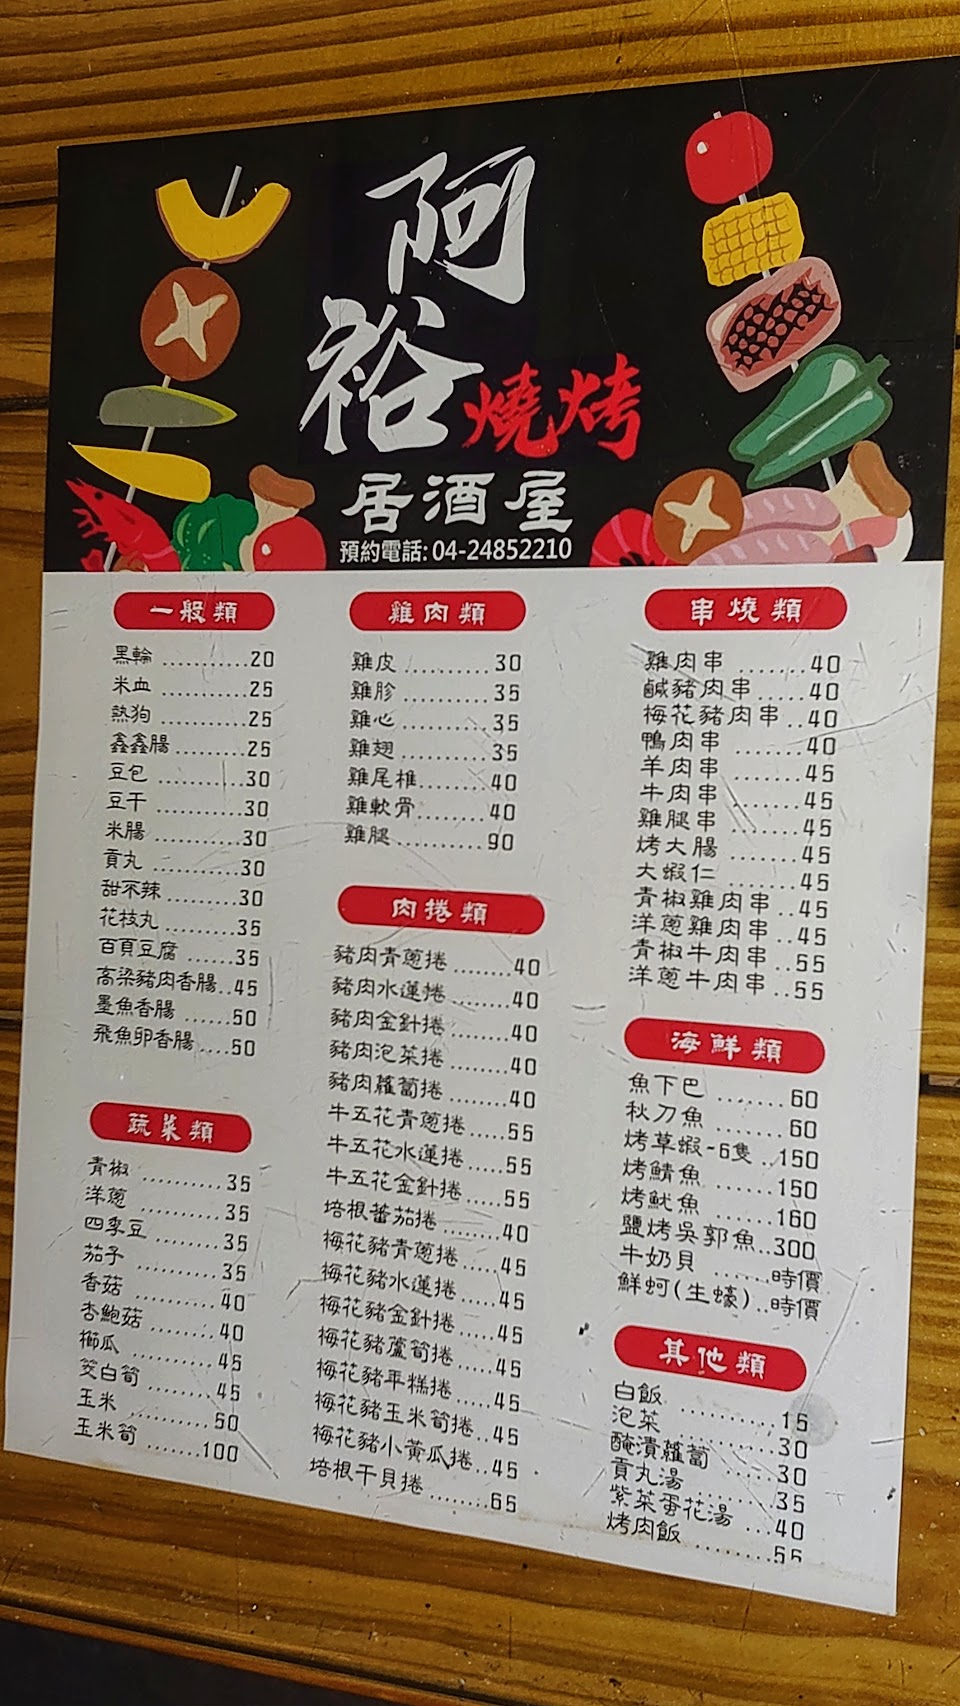 阿裕燒烤
居酒屋
預約電話: 04-24852210
一般類
黑輪...........20
米血...........25
熱狗...........25
鑫鑫腸.........25
豆包...........30
豆干...........30
米腸...........30
貢丸...........30
甜不辣.........30
花枝丸.........35
百頁豆腐......35
高梁豬肉香腸..45
墨魚香腸......50
飛魚卵香腸....50
蔬菜類
青椒..........35
洋蔥..........35
四季豆........35
茄子..........35
香菇..........40
杏鮑菇........40
櫛瓜..........45
筊白筍........45
玉米..........50
玉米筍.......100
雞肉類
雞皮..........30
雞胗..........35
雞心..........35
雞翅..........35
雞尾椎........40
雞軟骨........40
雞腿..........90
肉捲類
豬肉青蔥捲.......40
豬肉水蓮捲.......40
豬肉金針捲.......40
豬肉泡菜捲.......40
豬肉蘿蔔捲.......40
牛五花青蔥捲.....55
牛五花水蓮捲.....55
牛五花金針捲.....55
培根蕃茄捲.......40
梅花豬青蔥捲.....45
梅花豬水蓮捲.....45
梅花豬金針捲.....45
梅花豬蘆筍捲.....45
梅花豬年糕捲.....45
梅花豬玉米筍捲..45
梅花豬小黃瓜捲..45
培根干貝捲.......65
串燒類
雞肉串.......40
鹹豬肉串.....40
梅花豬肉串..40
鴨肉串.......40
羊肉串.......45
牛肉串.......45
雞腿串.......45
烤大腸.......45
大蝦仁.......45
青椒雞肉串..45
洋蔥雞肉串..45
青椒牛肉串..55
洋蔥牛肉串..55
海鮮類
魚下巴.......60
秋刀魚.......60
烤草蝦-6隻..150
烤鯖魚......150
烤魷魚......160
鹽烤吳郭魚..300
牛奶貝......時價
鮮蚵(生蠔)..時價
其他類
白飯..........15
泡菜..........30
醃漬蘿蔔......30
貢丸湯........35
紫菜蛋花湯...40
烤肉飯........55